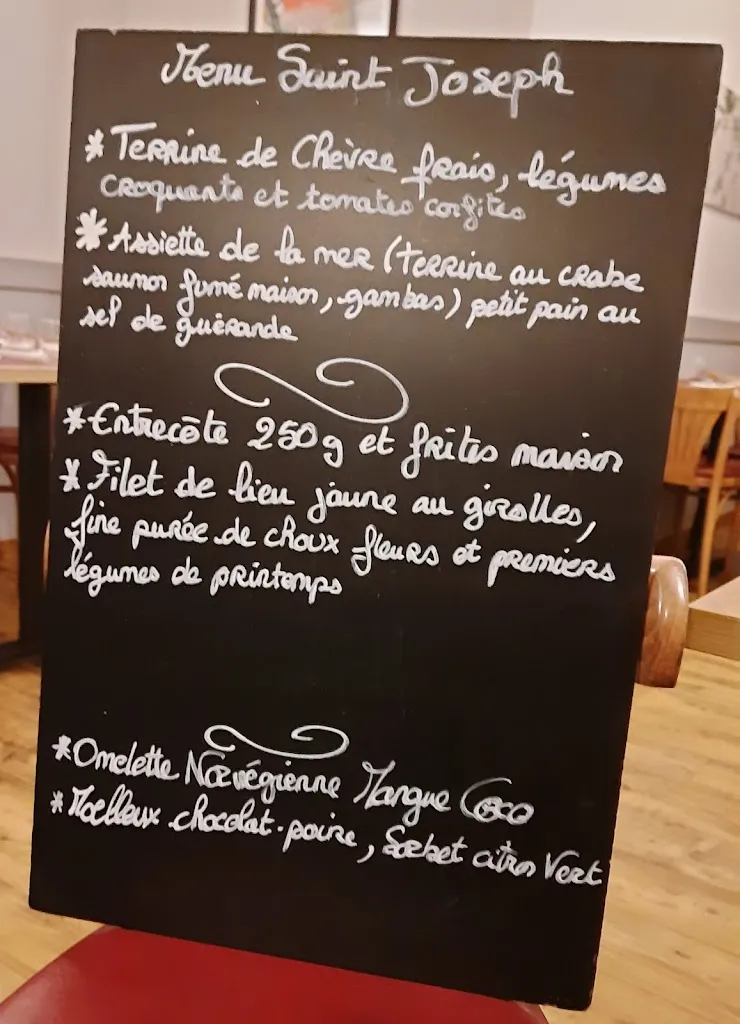 Menu Saint Joseph
* Terrine de Chèvre frais, légumes
croquants et tomates confites
* Assiette de la mer (terrine au crabe
saumon fumé maison, gambas) petit pain au
sel de guérande
* Entrecôte 250g et frites maison
* Filet de lieu jaune au girolles,
fine purée de choux fleurs et premiers
légumes de printemps
* Omelette Norvégienne Mangue Coco
* Moelleux chocolat-poire, Sorbet citron Vert